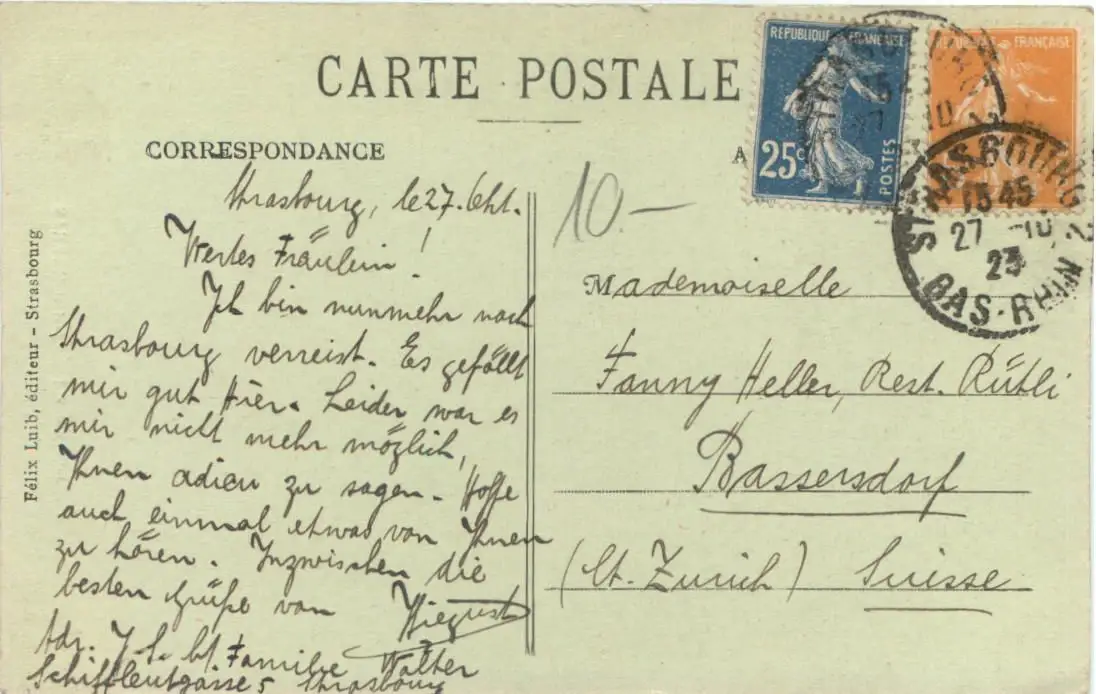 CARTE POSTALE
CORRESPONDANCE
A
RÉPUBLIQUE FRANÇAISE
25c
POSTES
RÉPUBLIQUE FRANÇAISE
STRASBOURG
15 45
27 -10
23
BAS-RHIN
10.—
Strasbourg, le 27. Okt.
Wertes Fräulein!
Ich bin nunmehr nach
Strasbourg verreist. Es gefällt
mir gut Hier. Leider war es
mir nicht mehr möglich,
Ihnen adieu zu sagen. Hoffe
auch einmal etwas von Ihnen
zu hören. Inzwischen die
besten Grüße von
Adr. Familie Walter
Schiffleutgasse 5 Strasbourg
Mademoiselle
Fanny Heller, Rest. Rütli
Bassersdorf
(Ct. Zürich) Suisse
Félix Luib, éditeur - Strasbourg